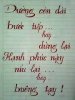 Đường còn dài
bước tiếp...
hay
dừng lại
Hạnh phúc này
níu lại...
hay
buông tay!